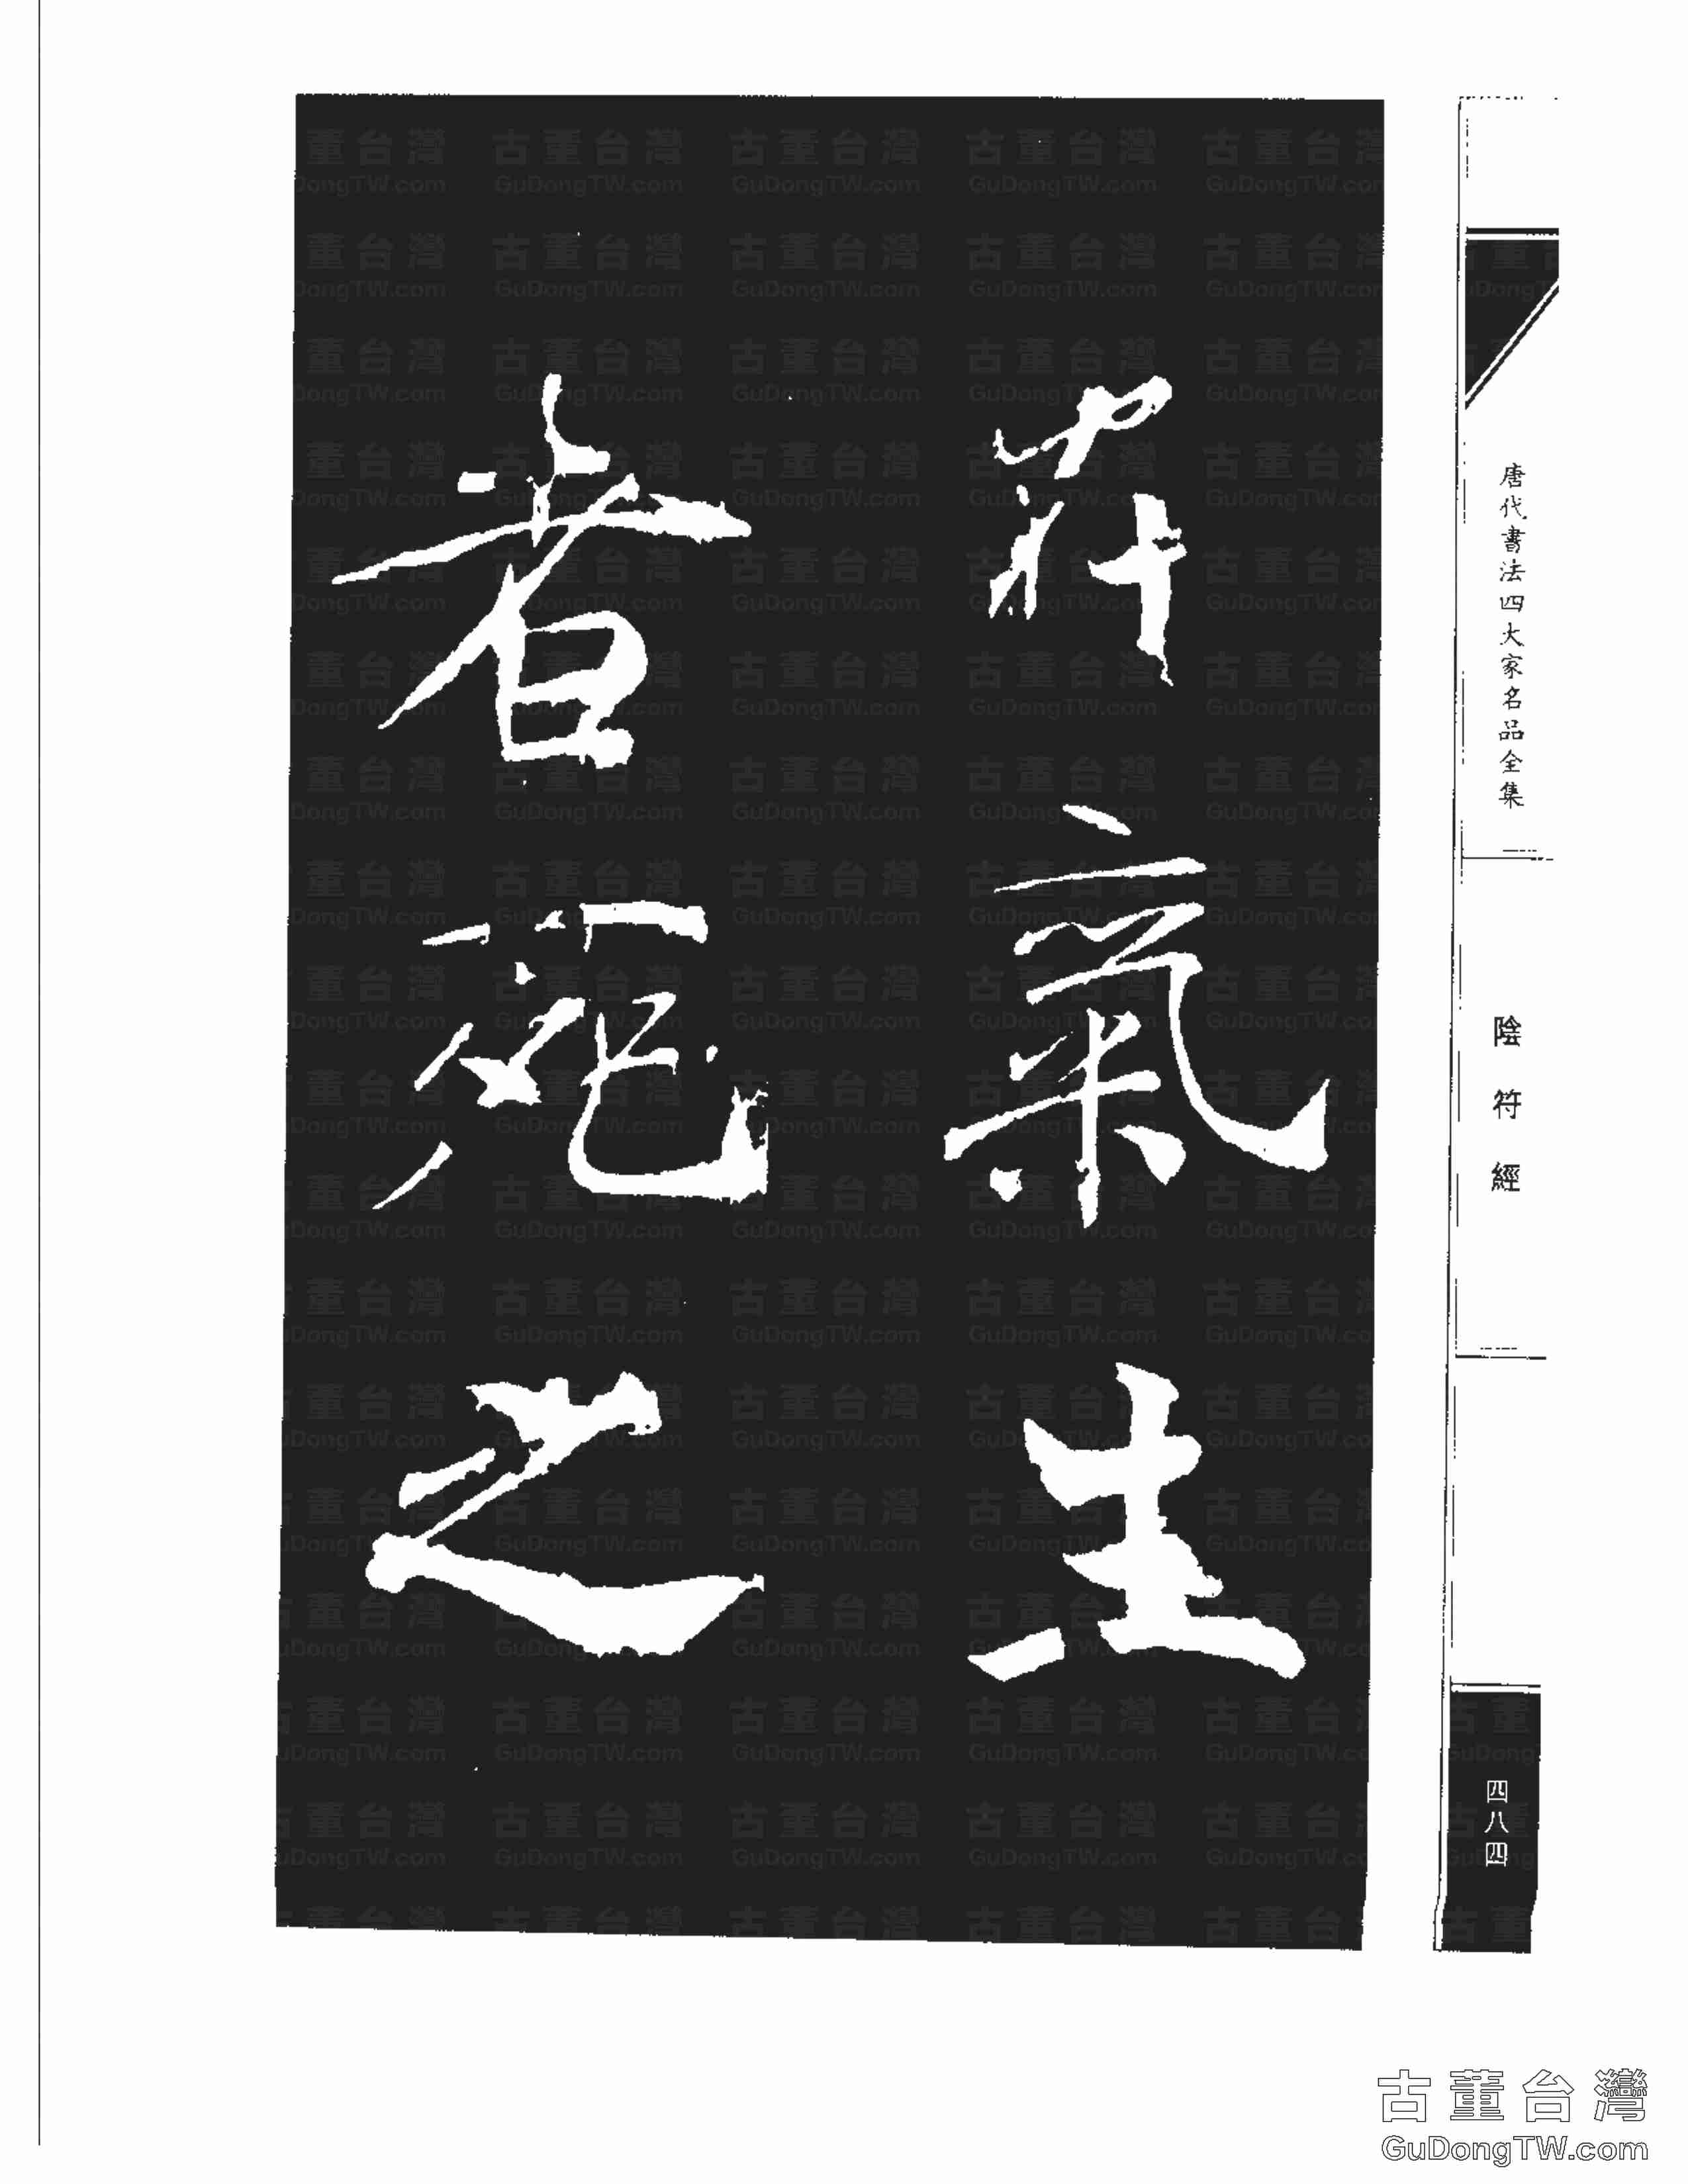 唐代書法四大家名品全集
陰符經
四八四
在氣生
者死之
古董台灣
GuDongTW.com